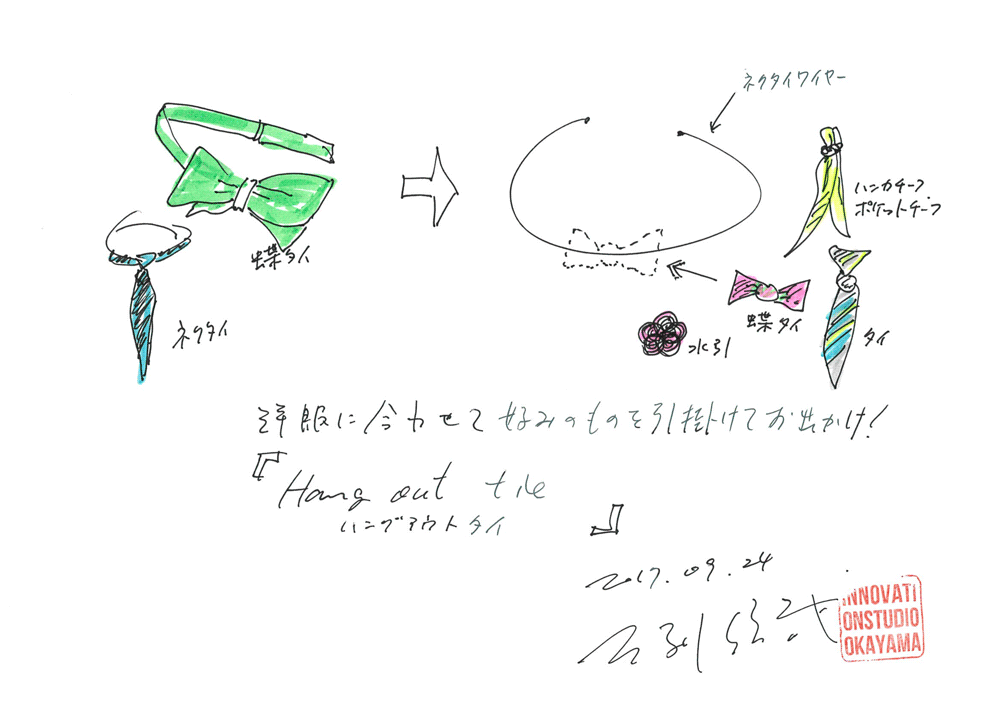 ネクタイワイヤー
ハンカチーフ
ポケットチーフ
蝶タイ
ネクタイ
蝶タイ
水引
タイ
洋服に合わせて好みのものを引掛けてお出かけ!
『Hang out tie
ハングアウトタイ
』
2017.09.24
INNOVATI
ONSTUDIO
OKAYAMA